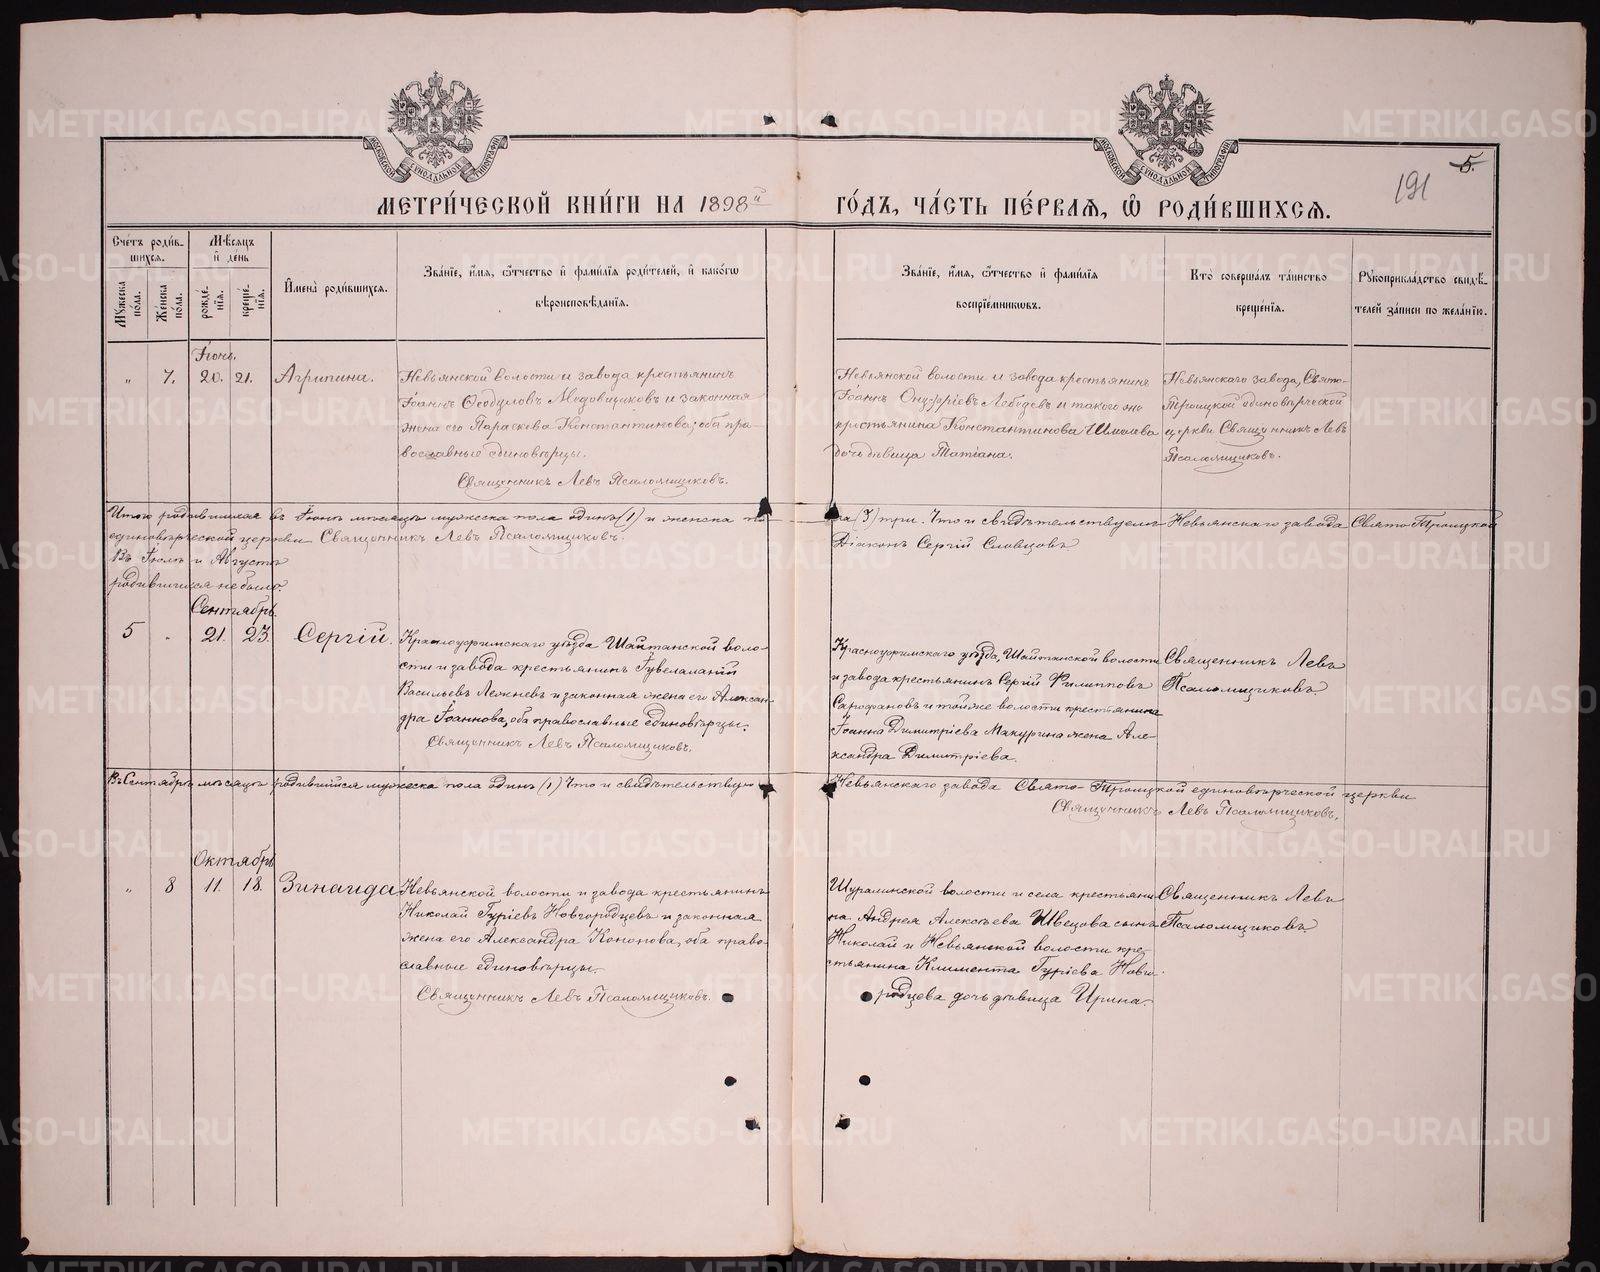 МОСКОВСКОЙ СѴНОДАЛЬНОЙ ТИПОГРАФІИ
МОСКОВСКОЙ СѴНОДАЛЬНОЙ ТИПОГРАФІИ
5.
191
МЕТРИ́ЧЕСКОЙ КНИ́ГИ НА 1898й ГО́ДЪ, ЧА́СТЬ ПЕ́РВАЯ, Ѡ҆ РОДИ́ВШИХСѦ.
Сче́тъ роди́в-
шихся.
Мꙋжеска по́ла.
Же́нска по́ла.
Мѣ́сяцъ
и҆ де́нь
рожде́-
нїѧ.
креще́-
нїѧ.
И҆мена̀ роди́вшихся.
Зва́нїе, и҆́мѧ, ѻ҆́тчество и҆ фами́лїѧ роди́телей, и҆ како́гѡ
вѣроисповѣ́данїѧ.
Зва́нїе, и҆́мѧ, ѻ҆́тчество и҆ фами́лїѧ
воспрїе́мникѡвъ.
Кто̀ соверша́лъ та́инство
креще́нїѧ.
Рꙋкоприкла́дство свидѣ́-
телей за́писи по жела́нїю.
Іюнь.
" 7. 20. 21. Агрипина.
Невьянской волости и завода крестьянинъ
Іоаннъ Ѳеодуловъ Медовщиковъ и законная
жена его Параскева Константинова; оба пра-
вославные единовѣрцы.
Священникъ Левъ Псаломщиковъ.
Невьянской волости и завода крестьянинъ
Іоаннъ Онуфріевъ Лебедевъ и такого же
крестьянина Константинова Шмелева
дочь дѣвица Татіана.
Невьянскаго завода, Свято-
Троицкой единовѣрческой
церкви Священникъ Левъ
Псаломщиковъ.
Итого родившихся въ Іюнѣ мѣсяцѣ мужеска пола одинъ (1) и женска по-
ла (3) три. Что и свидѣтельствуемъ Невьянскаго завода Свято-Троицкой
единовѣрческой церкви Священникъ Левъ Псаломщиковъ.
Діаконъ Сергій Словцовъ
Въ Іюлѣ и Августѣ
родившихся не было.
Сентябрь
5 " 21. 23. Сергій.
Красноуфимскаго уѣзда Шайтанской воло-
сти и завода крестьянинъ Гувеналий
Васильевъ Лежневъ и законная жена его Алексан-
дра Іоаннова, оба православные единовѣрцы.
Священникъ Левъ Псаломщиковъ.
Красноуфимскаго уѣзда, Шайтанской волости
и завода крестьянинъ Сергій Филипповъ
Сарафановъ и той же волости крестьянина
Іоанна Димитріева Макурина жена Але-
ксандра Димитріева.
Священникъ Левъ
Псаломщиковъ
Въ Сентябрѣ мѣсяцѣ родившійся мужеска пола одинъ (1) Что и свидѣтельствую
Невьянскаго завода Свято-Троицкой единовѣрческой церкви
Священникъ Левъ Псаломщиковъ.
Октябрь
" 8 11. 18. Зинаида
Невьянской волости и завода крестьянинъ
Николай Гуріевъ Новгородцевъ и законная
жена его Александра Кононова, оба право-
славные единовѣрцы.
Священникъ Левъ Псаломщиковъ.
Шуралинской волости и села крестьяни-
на Андрея Алексѣева Швецова сынъ
Николай и Невьянской волости кре-
стьянина Климента Гуріева Новго-
родцева дочь дѣвица Ирина.
Священникъ Левъ
Псаломщиковъ.
METRIKI.GASO-URAL.RU